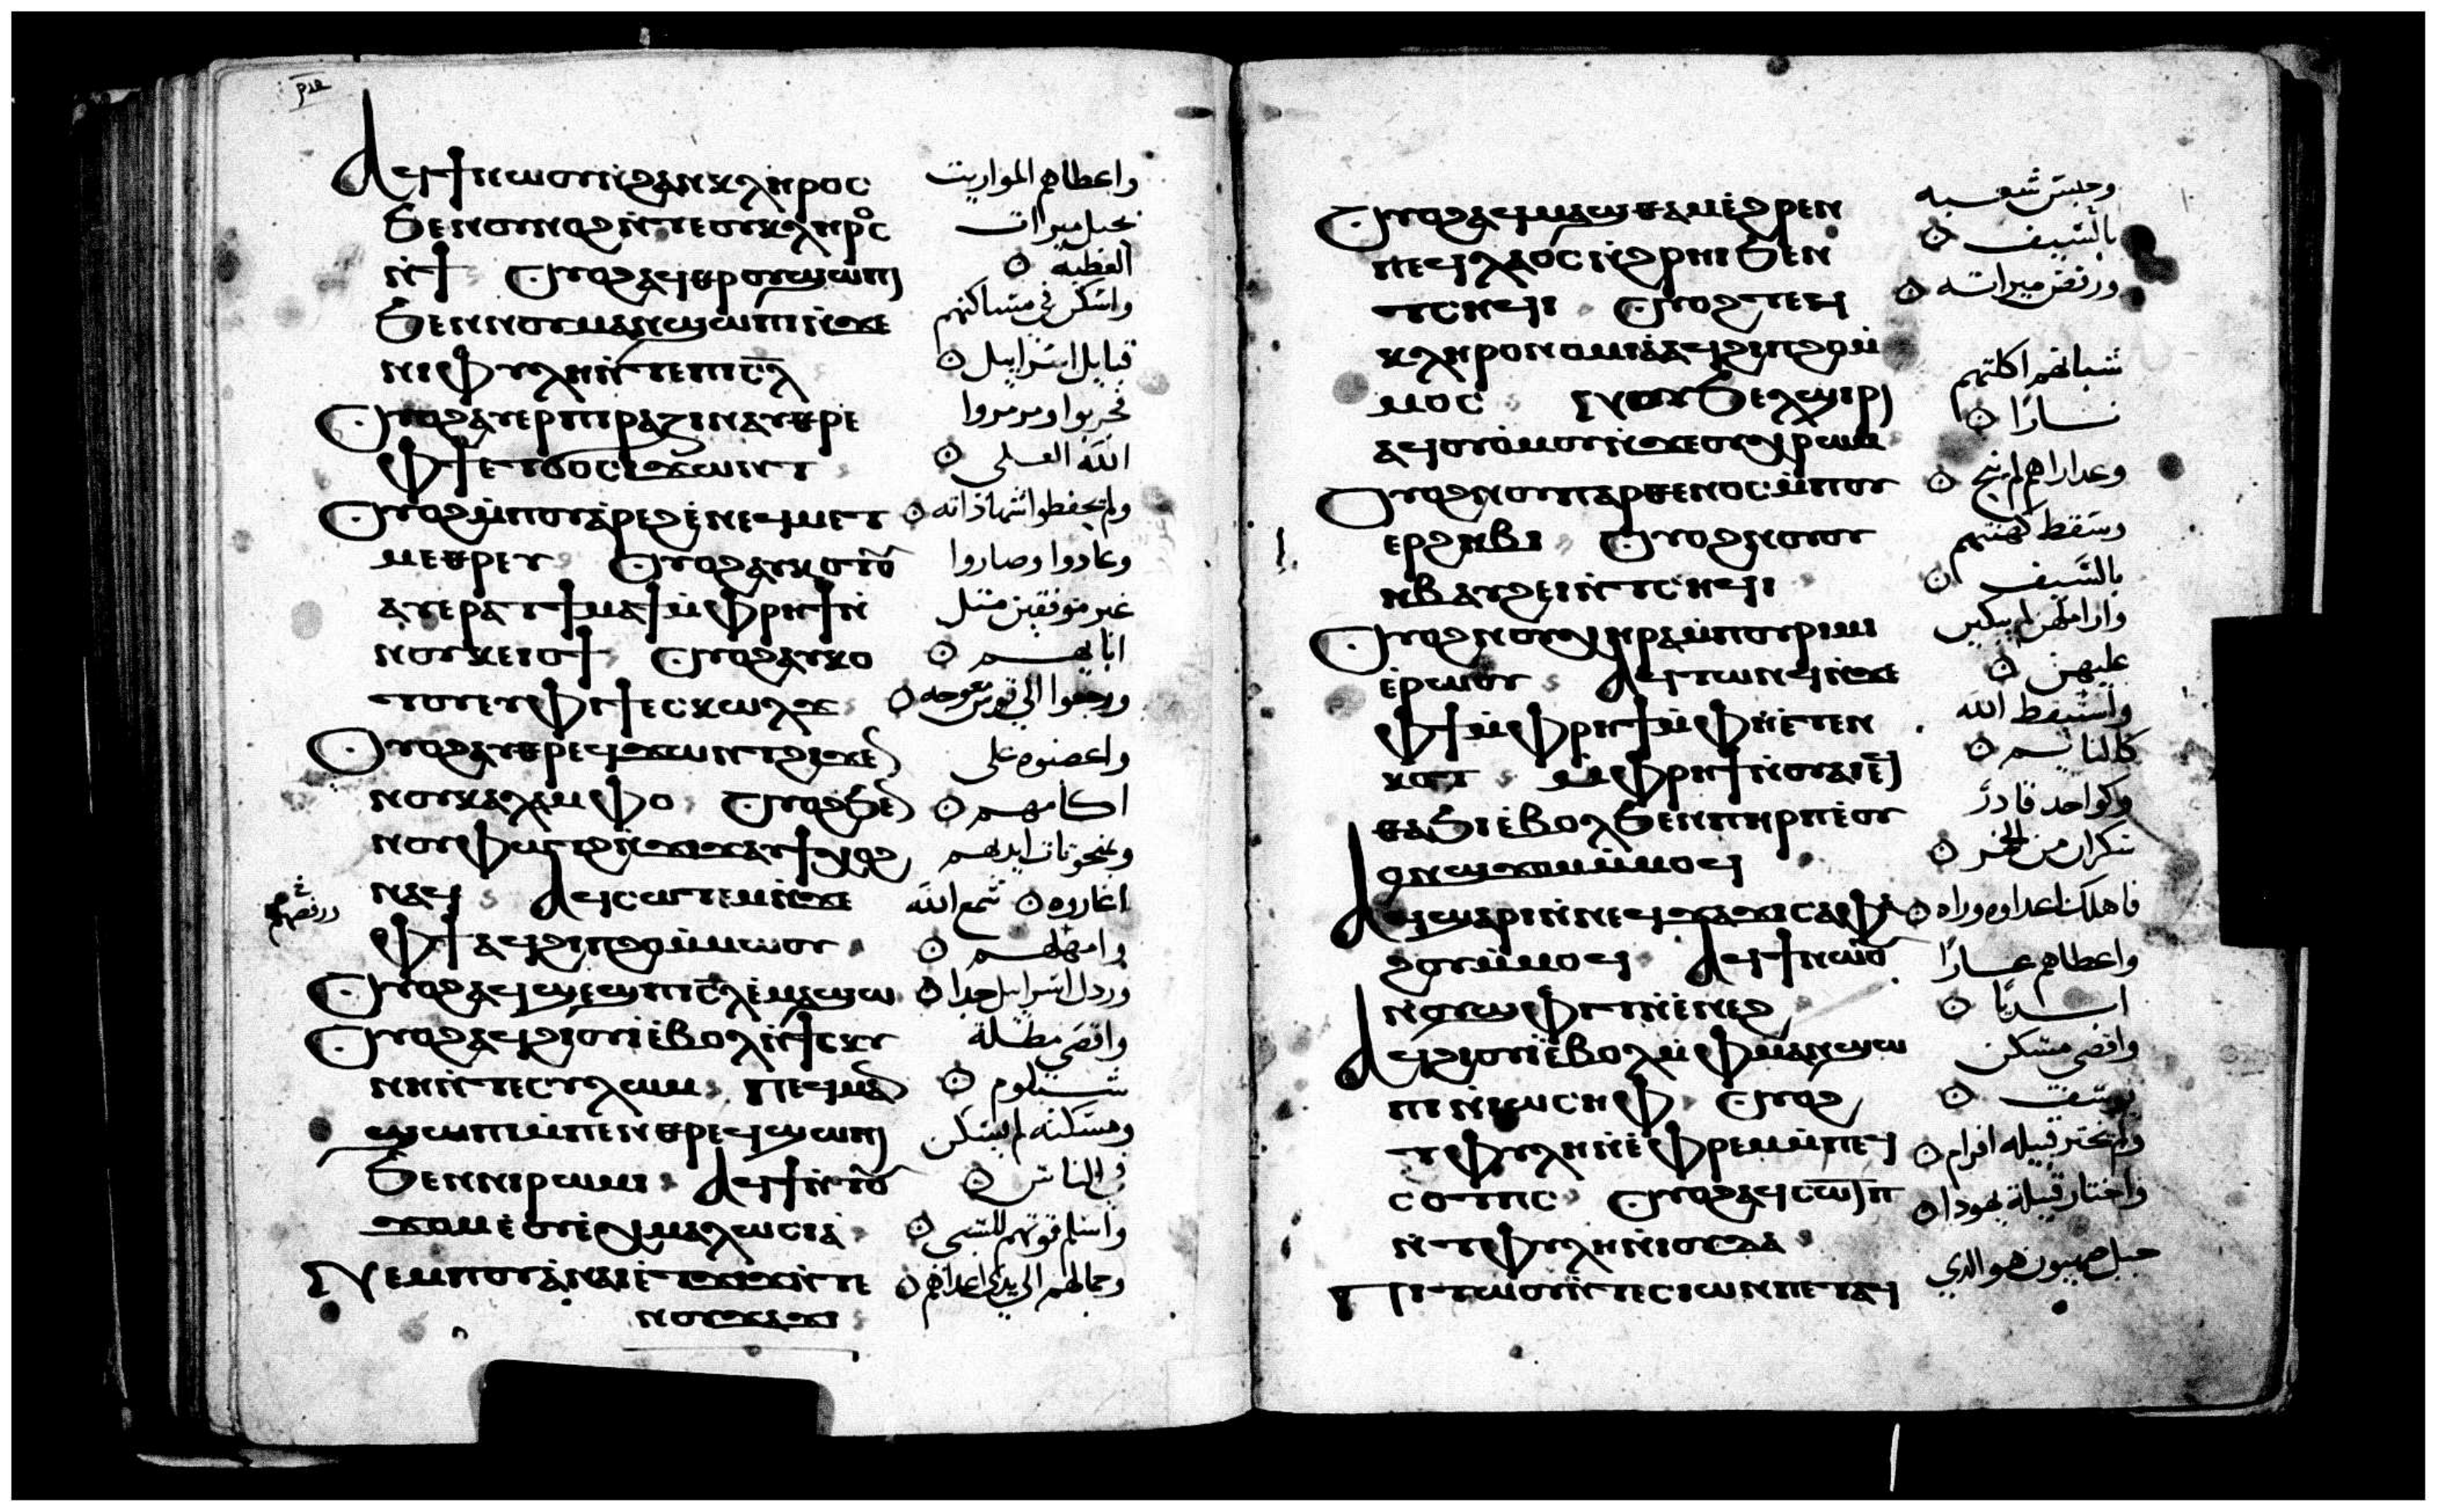 ⲁϥϯⲛⲱⲟⲩⲛ̀ϩⲁⲛⲕⲗⲏⲣⲟⲥ
واعطاهم المواريث
ϧⲉⲛⲟⲩⲛⲟϩ ⲛ̀ⲧⲉⲟⲩⲕⲗⲏⲣⲟⲥ
بحبل ميرات
ⲛ̀ϯ ⲟⲩⲟϩⲁϥⲑⲣⲟⲩϣⲱⲡⲓ
العطيه
ϧⲉⲛⲛⲟⲩⲙⲁⲛϣⲱⲡⲓⲛ̀ϫⲉ
واسكن في مساكنهم
ⲛⲓⲫⲩⲗⲏⲛ̀ⲧⲉⲡⲓⲥ̅ⲗ
قبايل اسراييل
ⲟⲩⲟϩⲁⲩⲉⲣⲡⲓⲣⲁⲍⲓⲛⲁⲩⲑⲣⲉ
فجربوا ومرمروا
ⲫϯⲉⲧϭⲟⲥⲓϫⲱⲛⲧ
الله العلي
ⲟⲩⲟϩⲙ̀ⲡⲟⲩⲁ̀ⲣⲉϩⲉ̀ⲛⲉϥⲙⲉⲧ
ولم يحفظوا شهاداته
ⲙⲉⲑⲣⲉⲩ ⲟⲩⲟϩⲁⲩⲕⲟⲧⲟⲩ
وعادوا وصاروا
ⲁⲩⲉⲣⲁⲧϯⲙⲁϯⲙ̀ⲫⲣⲏϯⲛ̀
غير موفقين متل
ⲛⲟⲩⲕⲉⲓⲟϯ ⲟⲩⲟϩⲁⲩⲕⲟ
ابايهم
ⲧⲟⲩⲉⲩⲫⲓϯⲉⲥⲕⲱⲗϫ
ورجعوا الي قوس معوجه
ⲟⲩⲟϩⲁⲩⲑⲣⲉϥϫⲱⲛⲧϩⲓϫⲉⲛ
واغضبوه على
ⲛⲟⲩⲕⲁⲗⲁⲙⲫⲟ ⲟⲩⲟϩϧⲉⲛ
اكامهم
ⲛⲟⲩⲫⲱⲧϩⲛ̀ϫⲓϫⲁⲩϯⲭⲟϩ
وبمنحوتات ايديهم
ⲛⲁϥ ⲁϥⲥⲱⲧⲉⲙⲛ̀ϫⲉ
اغاروه سمع الله
ⲫϯⲁϥϩⲓⲡϩⲟⲙ̀ⲙⲱⲟⲩ
وامهلهم
ورفضهم
ⲟⲩⲟϩⲁϥϣⲉϣⲡⲓⲥ̅ⲗⲉ̀ⲙⲁϣⲱ
وردل اسراييل جدا
ⲟⲩⲟϩⲁϥϩⲓⲟⲩⲓ̀ⲉ̀ⲃⲟⲗⲛ̀ϯⲥⲕⲩ
واقصى مظلة
ⲛⲏⲛ̀ⲧⲉⲥⲩⲗⲱⲙ ⲡⲉϥⲙⲁⲛ
شيلوم
ϣⲱⲡⲓⲙ̀ⲡⲉⲛⲑⲣⲉϥϣⲱⲡⲓ
ومسكنه لم يسكن
ϧⲉⲛⲛⲓⲣⲱⲙⲓ ⲁϥϯⲛ̀ⲧⲟⲩ
في الناس
ϫⲟⲙⲉ̀ⲟⲩⲉ̀ⲭⲙⲁⲗⲱⲥⲓⲁ̀
واسلم قوتهم للسبى
ⲛⲉⲙⲡⲟⲩⲁ̀ⲛⲁⲓⲉ̀ⲧϫⲓϫⲛ̀ⲧⲉ
وجمالهم الى يدي اعداهم
ⲛⲟⲩϫⲁϫⲓ
ⲟⲩⲟϩⲁϥⲙⲁϣⲑⲁⲙⲉ̀ϩⲣⲉⲛ
وحبس شعبه
ⲡⲉϥⲗⲁⲟⲥⲛ̀ϩⲣⲏⲓϧⲉⲛ
بالسيف
ⲧⲥⲏϥⲓ ⲟⲩⲟϩⲧⲉϥ
ورفض ميراته
ⲕⲗⲏⲣⲟⲛⲟⲙⲓⲁ̀ⲁϥϩⲓⲡϩⲟⲙ̀
ⲙⲟⲥ ⲛⲟⲩϧⲉⲗϣⲓⲣⲓ
شبانهم اكلتهم
ⲁϥⲟⲩⲟ̀ⲙⲟⲩⲛ̀ϫⲉⲟⲩⲭⲣⲱⲙ
نارا
ⲟⲩⲟϩⲛⲟⲩⲡⲁⲣⲑⲉⲛⲟⲥⲙ̀ⲡⲟⲩ
وعداراهم لم ينح
ⲉⲣϩⲏⲃⲓ ⲟⲩⲟϩⲛⲟⲩⲟⲩ
وسقط كهنتهم
ⲏⲃⲁⲩϩⲉⲓⲛ̀ⲧⲥⲏϥⲓ
بالسيف
ⲟⲩⲟϩⲛⲟⲩⲭⲏⲣⲁⲙ̀ⲡⲟⲩⲣⲓⲙⲓ
واراملهن لم يبكين
ⲉ̀ⲣⲱⲟⲩ ⲁϥⲧⲱⲛϥⲛ̀ϫⲉ
عليهن
ⲫϯⲙ̀ⲫⲣⲏϯⲙ̀ⲫⲏⲉ̀ⲧⲉⲛ
واستيقظ الله
ⲕⲟⲧ ⲙ̀ⲫⲣⲏϯⲛ̀ⲟⲩⲁⲓⲉϥ
كالنايم
ⲑⲁϧⲓⲉ̀ⲃⲟⲗϧⲉⲛⲡⲏⲣⲡⲉ̀ⲟⲩ
وكواحد قادر
ⲟⲛϣϫⲟⲙⲙ̀ⲙⲟϥ
سكران من الخمر
ⲁϥϣⲁⲣⲓⲛ̀ⲛⲉϥϫⲁϫⲓⲥⲁⲫⲁ
فاهلك اعداوه وراه
ϩⲟⲩⲙ̀ⲙⲟϥ ⲁϥϯⲛⲱⲟⲩ
واعطاهم عارا
ⲛⲟⲩϣⲫⲓⲧⲛ̀ⲉ̀ⲛⲉϩ
ابديا
ⲁϥϩⲓⲟⲩⲓ̀ⲉ̀ⲃⲟⲗⲙ̀ⲫⲙⲁⲛϣⲱ
واقصى مسكن
ⲡⲓⲛ̀ⲓⲱⲥⲏⲫ ⲟⲩⲟϩ
يوسف
ⲧⲫⲩⲗⲏⲛ̀ⲉ̀ⲫⲣⲉⲙⲙ̀ⲡⲉϥ
ولم يختر قبيله افرام
ⲥⲟⲧⲡⲥ ⲟⲩⲟϩⲁϥⲥⲱⲧⲡ
واختار قبيلة يهودا
ⲛ̀ⲧⲫⲩⲗⲏⲛ̀ⲓⲟⲩⲇⲁ
ⲡⲓⲧⲱⲟⲩⲛ̀ⲧⲉⲥⲓⲱⲛⲡⲉⲧⲁϥ
جبل صهيون هو الدي